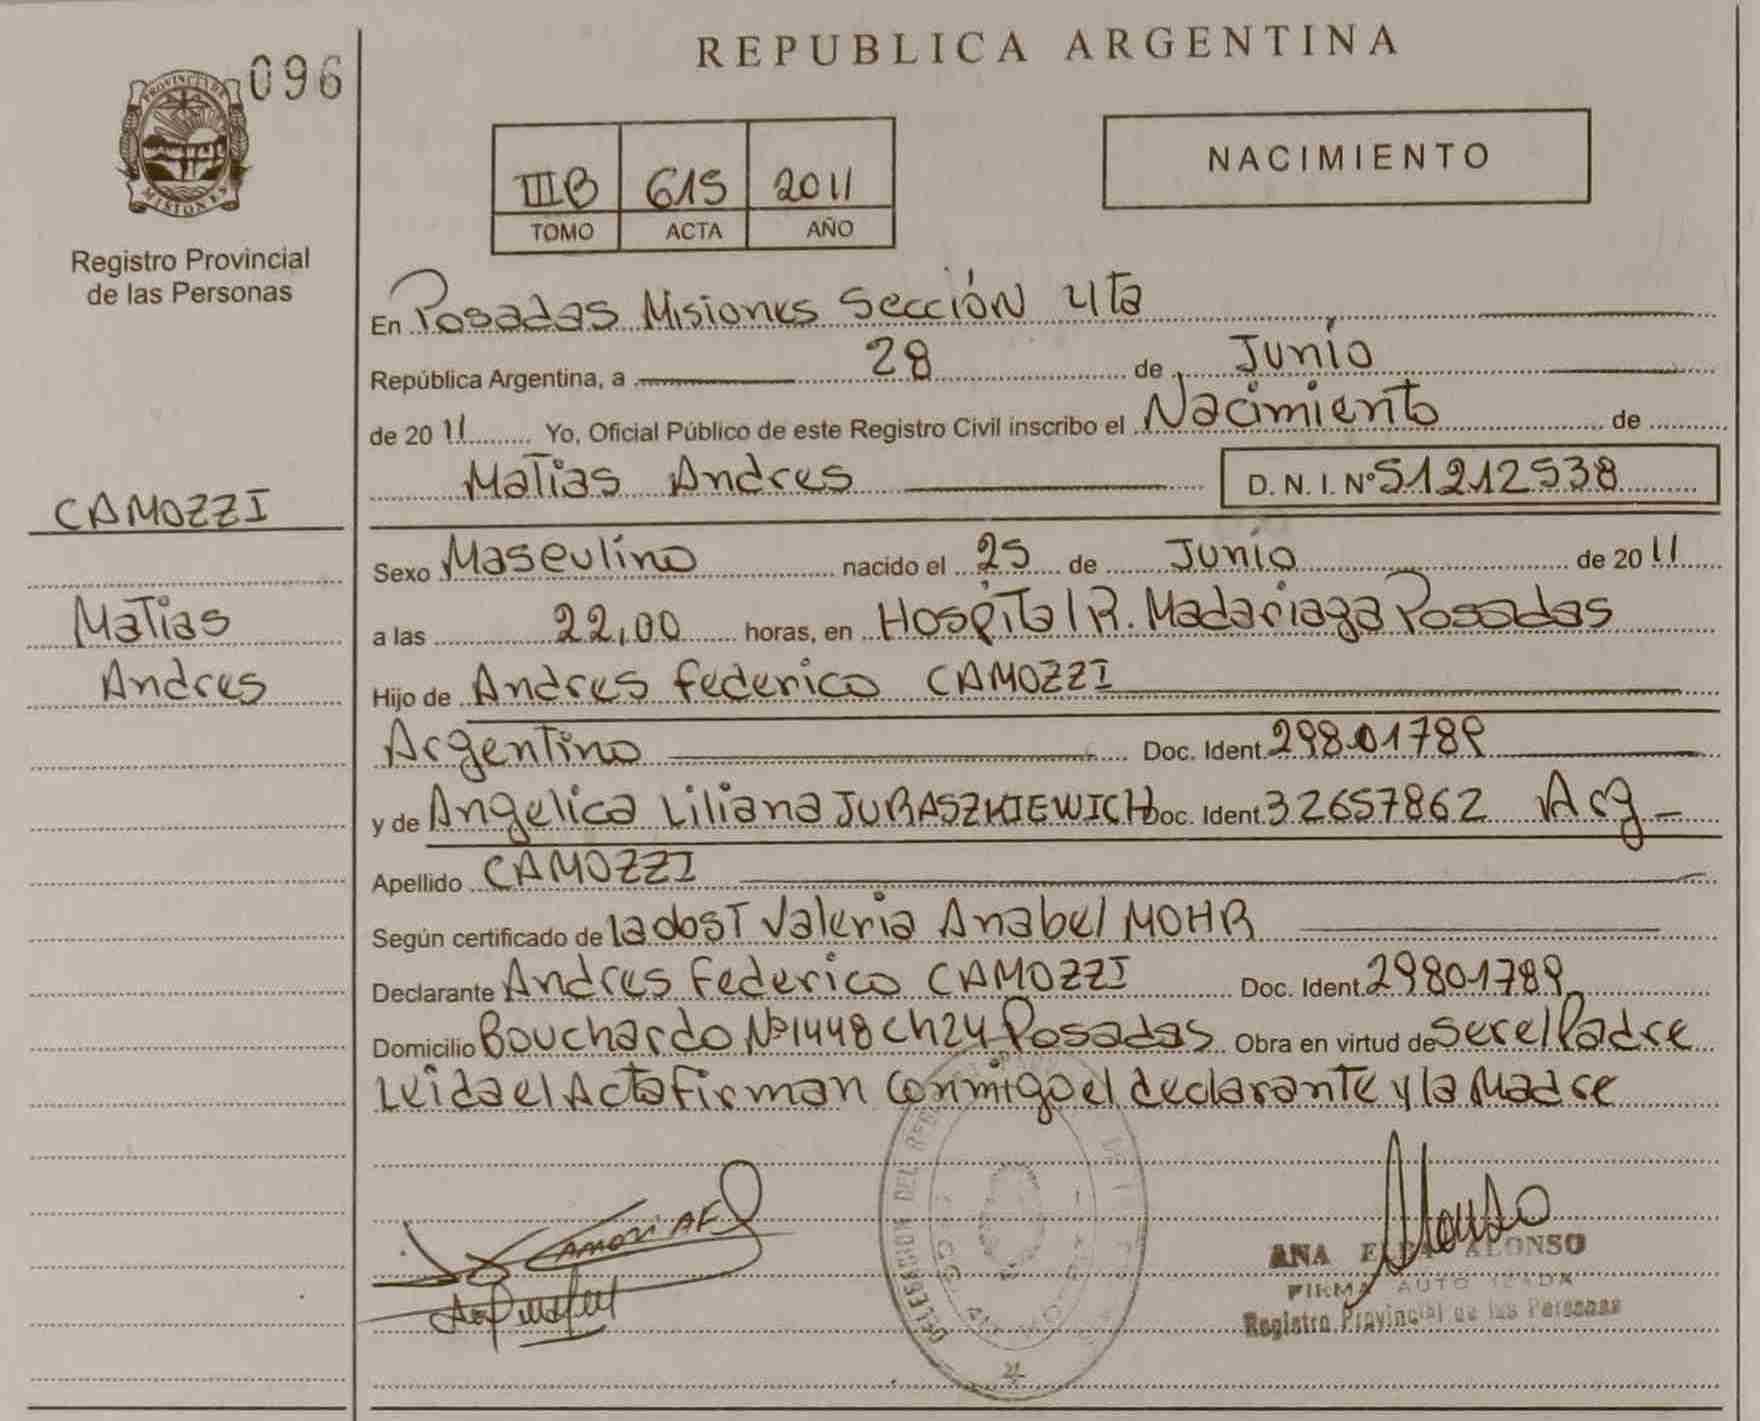 096
REPUBLICA ARGENTINA
PROVINCIA DE
MISIONES
Registro Provincial
de las Personas
IIIB 615 2011
TOMO ACTA AÑO
NACIMIENTO
En Posadas Misiones Sección 4ta
República Argentina, a 28 de Junio
de 2011 Yo, Oficial Público de este Registro Civil inscribo el Nacimiento de
Matias Andres D. N. I. Nº 51212538
CAMOZZI
Matias
Andres
Sexo Masculino nacido el 25 de Junio de 2011
a las 22,00 horas, en Hospital R. Madariaga Posadas
Hijo de Andres Federico CAMOZZI
Argentino Doc. Ident. 29801789
y de Angelica Liliana JURASZKIEWICH Doc. Ident. 32657862 Arg
Apellido CAMOZZI
Según certificado de la obst Valeria Anabel MOHR
Declarante Andres Federico CAMOZZI Doc. Ident. 29801789
Domicilio Bouchardo Nº 1448 Ch24 Posadas Obra en virtud de ser el Padre
Leida el Acta firman conmigo el declarante y la Madre
DELEGACION DEL
ANA ALONSO
FIRMA AUTORIZADA
Registro Provincial de las Personas